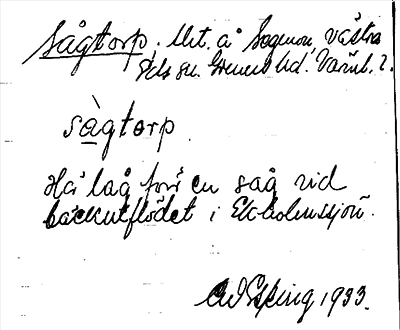 Sågtorp. Utt. å Sogmon, västra
Eds sn. Grums hd. Värml. l.
sàgtorp
Här låg förr en såg vid
bäckutflödet i Ekholmssjön.
Esping 1933.